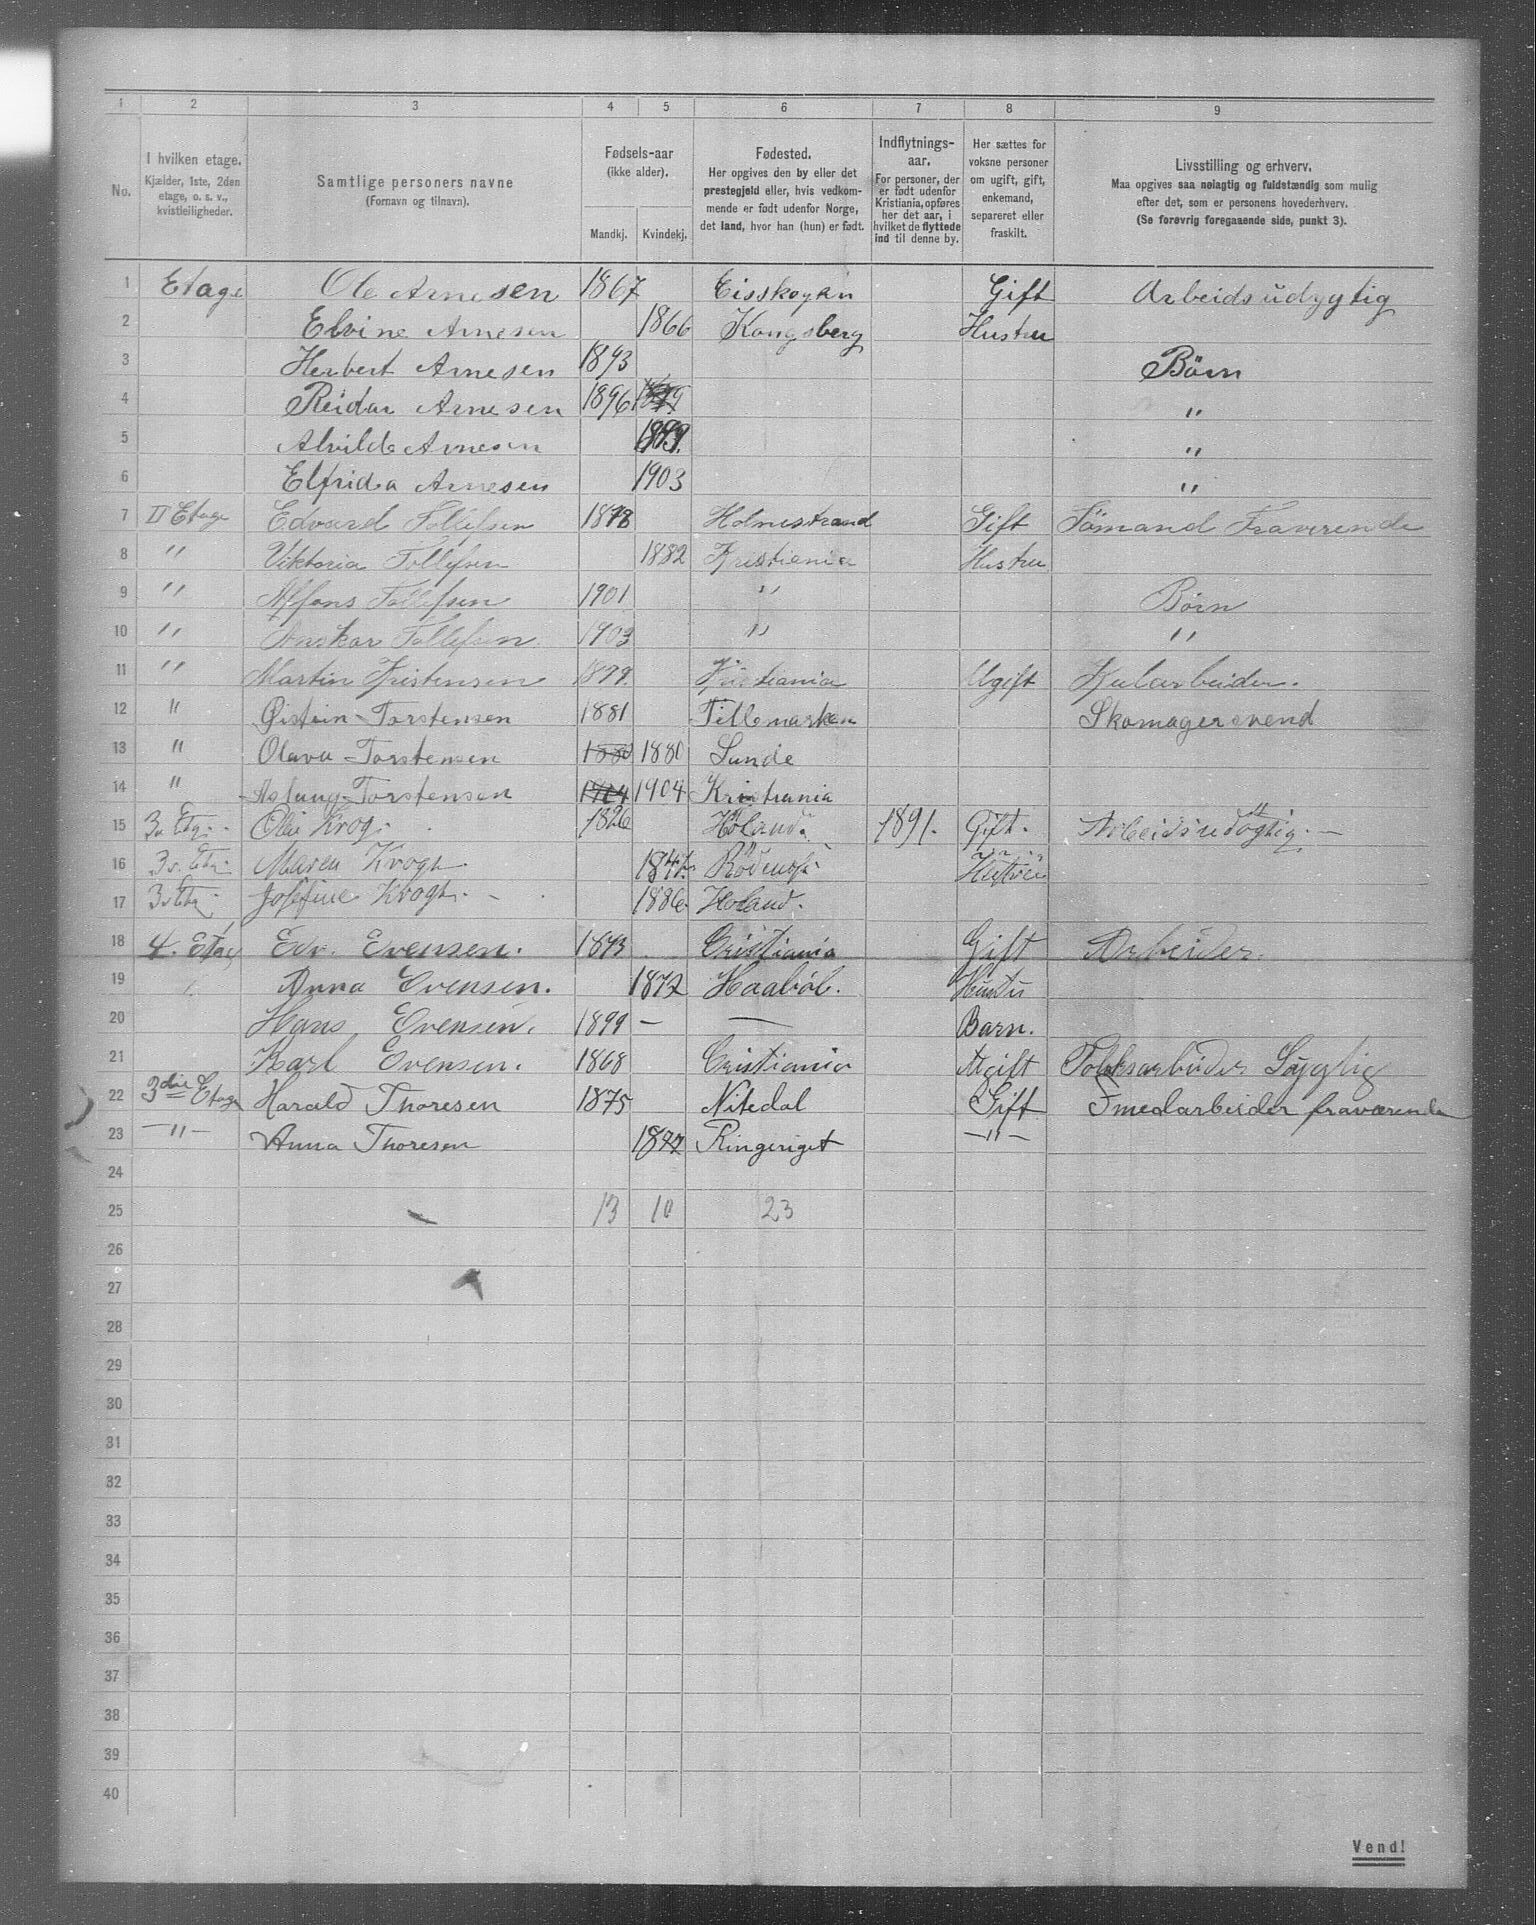 1 2 3 4 5 6 7 8 9
No.
I hvilken etage.
Kjælder, 1ste, 2den
etage, o. s. v.,
kvistleiligheder.
Samtlige personers navne
(Fornavn og tilnavn).
Fødsels-aar
(ikke alder).
Mandkj. Kvindekj.
Fødested.
Her opgives den by eller det
prestegjeld eller, hvis vedkom-
mende er født udenfor Norge,
det land, hvor han (hun) er født.
Indflytnings-
aar.
For personer, der
er født udenfor
Kristiania, opføres
her det aar, i
hvilket de flyttede
ind til denne by.
Her sættes for
voksne personer
om ugift, gift,
enkemand,
separeret eller
fraskilt.
Livsstilling og erhverv.
Maa opgives saa nøiagtig og fuldstændig som mulig
efter det, som er personens hovederhverv.
(Se forøvrig foregaaende side, punkt 3).
1 Etage Ole Arnesen 1867 Gift Arbeidsudygtig
2 Elvine Arnesen 1866 Kongsberg Hustru
3 Herbert Arnesen 1893 Børn
4 Reidar Arnesen 1896 "
5 Alvilde Arnesen "
6 Elfrida Arnesen 1903 "
7 II Etage Edvard Tollefsen 1878 Holmestrand Gift Sömand Fraverende
8 " Viktoria Tollefsen 1882 Kristiania Hustru
9 " Alfons Tollefsen 1901 " Börn
10 " Anskar Tollefsen 1903 " "
11 " Martin Kristensen 1899 Kristiania Ugift Kularbeider.
12 " Øistein Torstensen 1881 Tillemarken Skomagersvend
13 " Olava Torstensen 1880 1880 Sunde
14 " Aslaug Torstensen 1904 1904 Kristiania
15 3. Etg. Krog. 1826 Höland. 1891. Gift. Arbeidsudögtig.
16 3. Etg. Maren Krogh. Hustru
17 3 Etg Josefine Krogh. 1886. Holand.
18 4. Etag Edv. Evensen. 1873 Cristiania Gift Arbeider.
19 Anna Evensen. 1872 Haaböl. Hustru
20 Hans Evensen. 1899 — — Barn.
21 Karl Evensen. 1868 Cristiania Ugift
22 3die Etage Harald Thoresen 1875 Nitedal Gift Smedarbeider fraværende
23 —"— Anna Thoresen 1877 Ringeriget —"—
24
25 13 10 23
26
27
28
29
30
31
32
33
34
35
36
37
38
39
40
Vend!